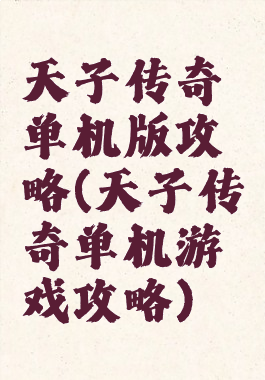 天子传奇
单机版攻
略(天子传
奇单机游
戏攻略)